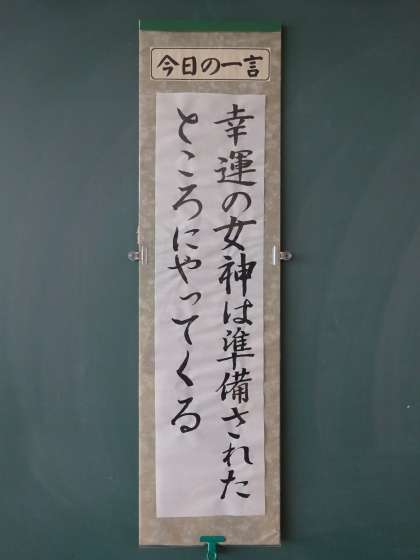 今日の一言
幸運の女神は準備された
ところにやってくる